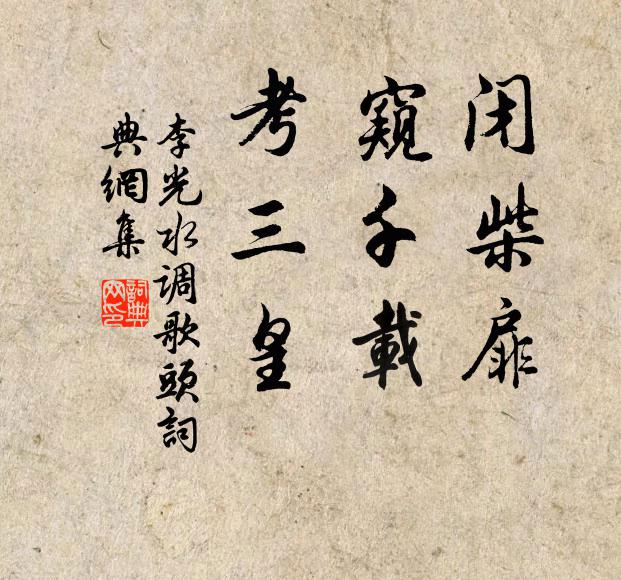 闭柴扉
窥千載
考三皇
李光水调歌頭詞
典網集
詞典
网印